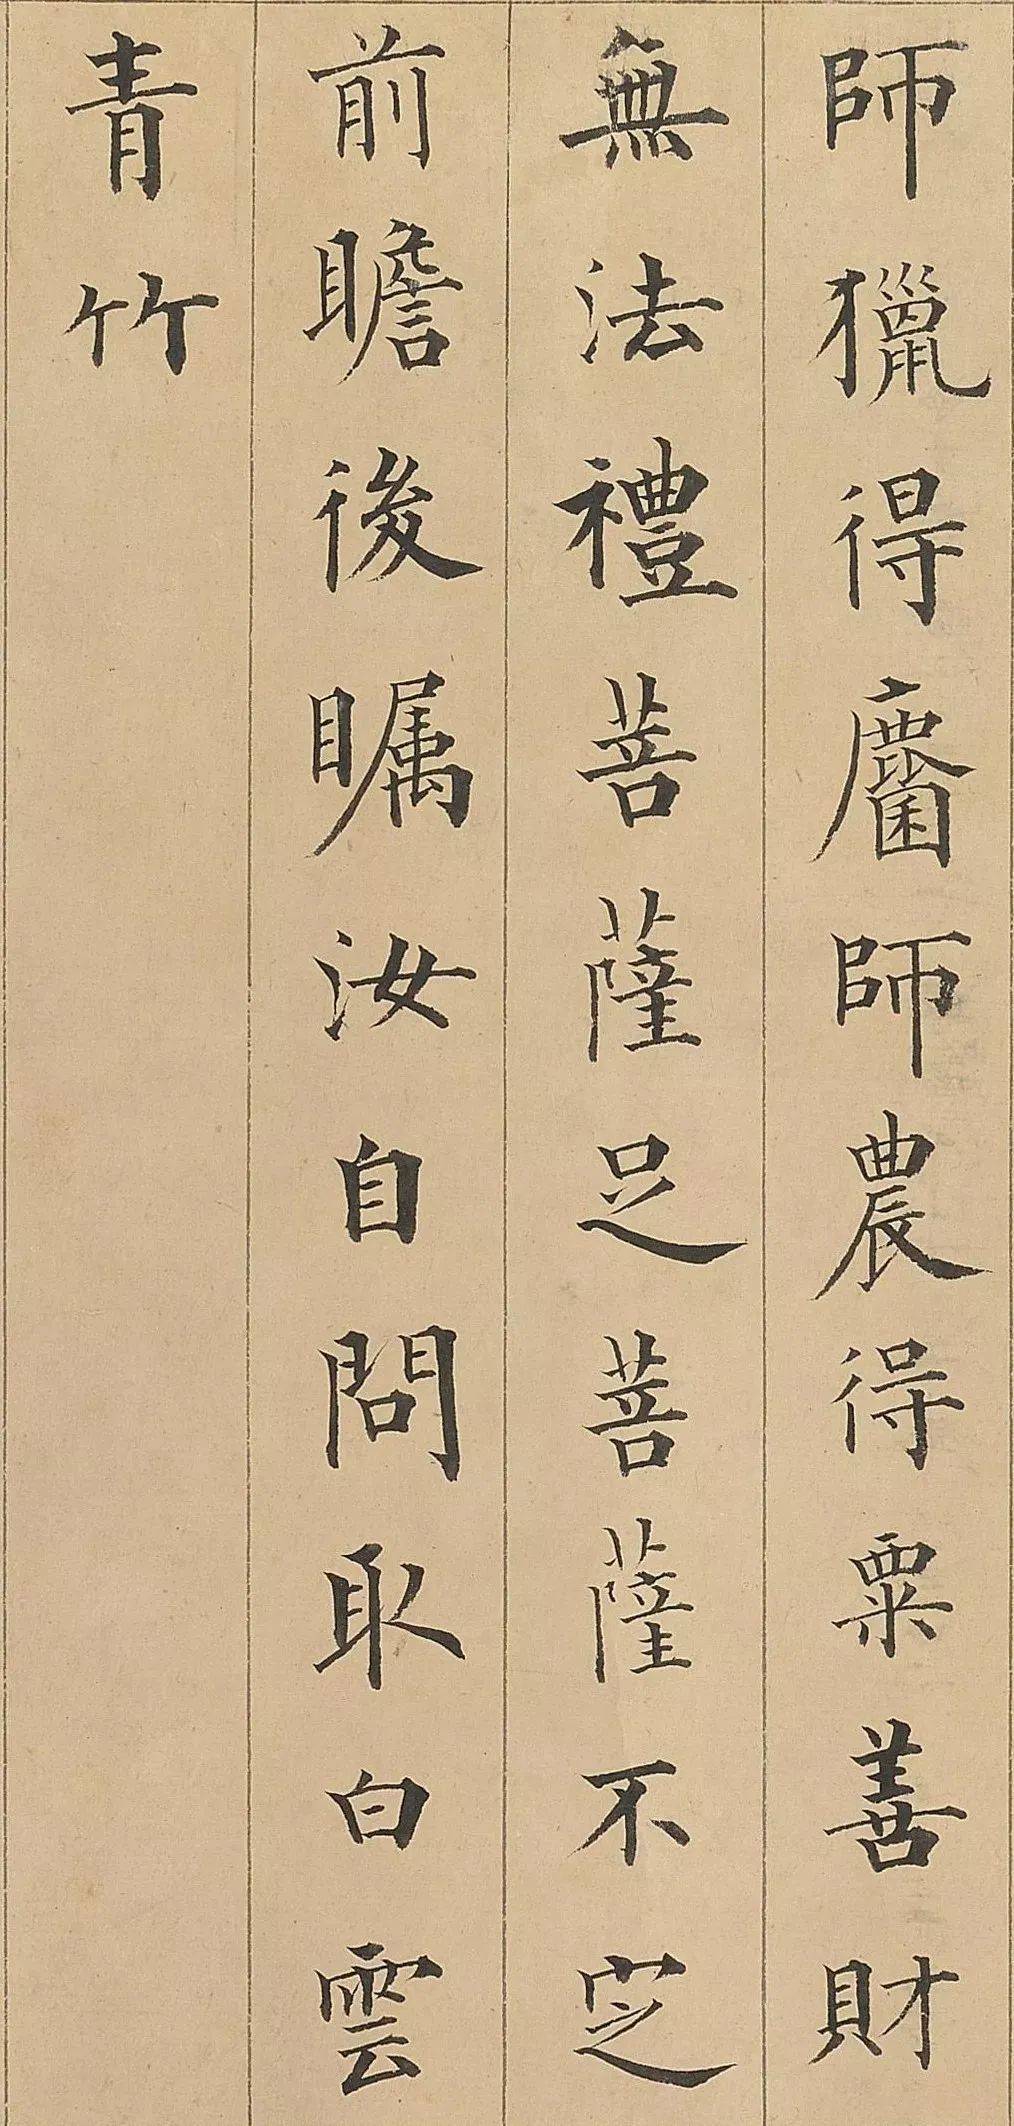 師獵得麕師農得粟善財
無法禮菩薩足菩薩不定
前瞻後瞩汝自問取白雲
青竹